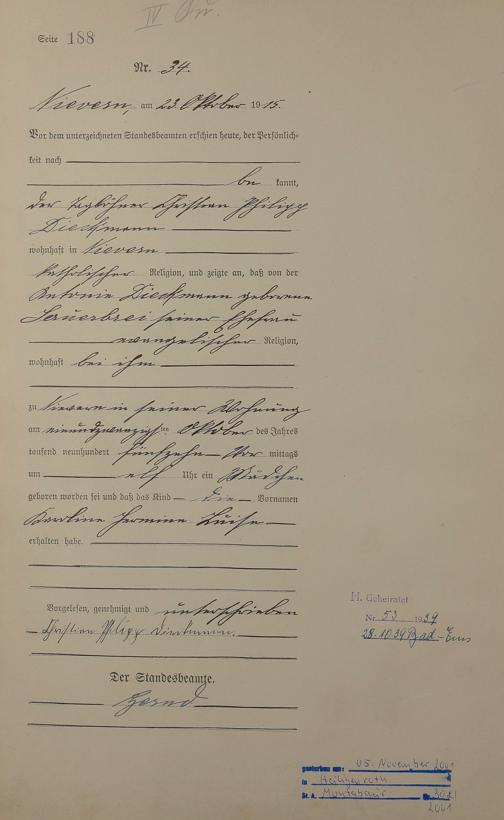 IV
Seite 188
Nr. 34.
Nievern, am 23. Oktober 1915.
Vor dem unterzeichneten Standesbeamten erschien heute, der Persönlich-
keit nach
be kannt,
der Taglöhner Christian Philipp
Dieckmann
wohnhaft in Nievern
katholischer Religion, und zeigte an, daß von der
Antonie Dieckmann geborene
Sauerbrei seiner Ehefrau
evangelischer Religion,
wohnhaft bei ihm
zu Nievern in seiner Wohnung
am einundzwanzigsten Oktober des Jahres
tausend neunhundert fünfzehn Vor mittags
um elf Uhr ein Mädchen
geboren worden sei und daß das Kind die Vornamen
Karoline Hermine Luise
erhalten habe.
Vorgelesen, genehmigt und unterschrieben
Christian Philipp Dieckmann.
Der Standesbeamte.
H. Geheiratet
Nr. 53 1939
28.10.39 Bad-Ems
gestorben am: 05. November 2001
in Heiligenroth
St. A. Montabaur
2001